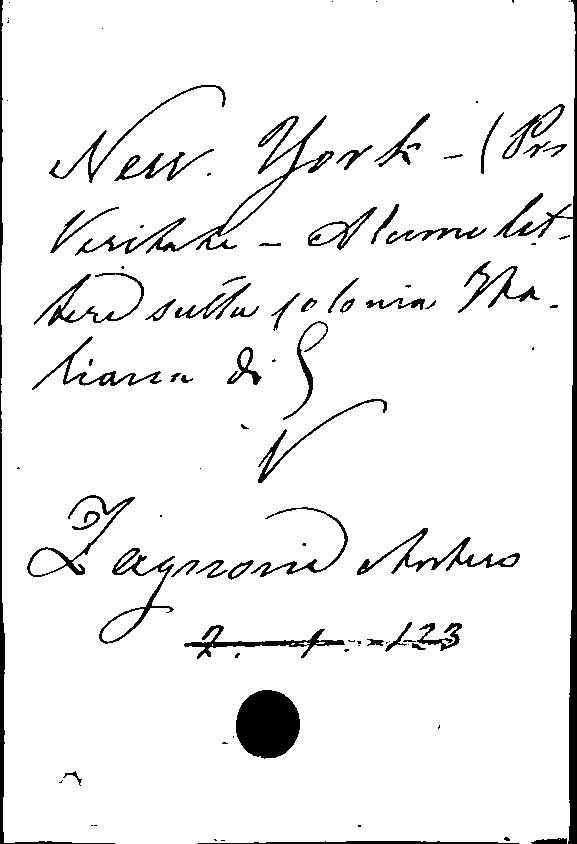 New. York - (Pro
Veritate - Alcune let-
tere sulla colonia Ita-
liana di S
V
Zagnoni Antero
2. 1. 123